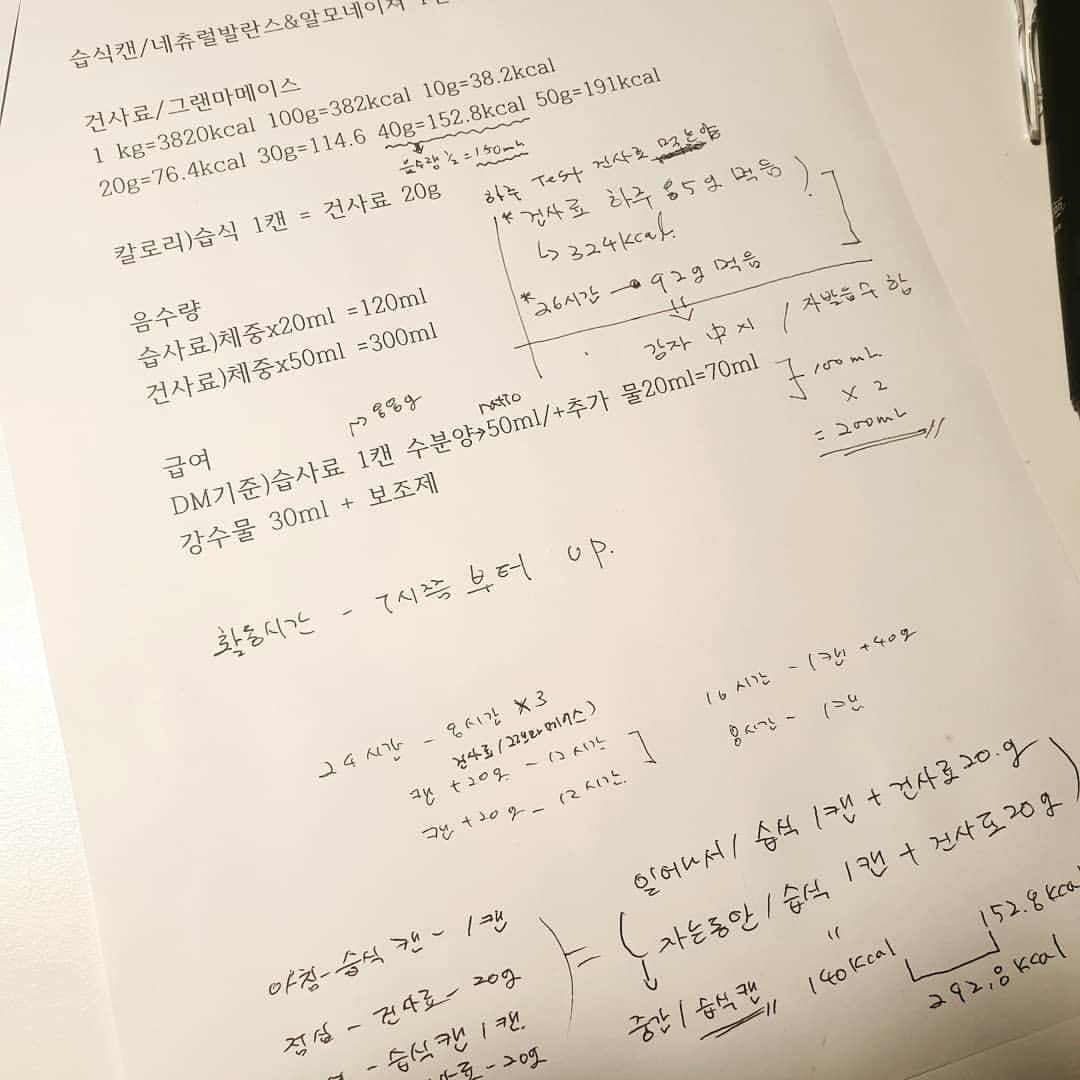 습식캔/네츄럴발란스&알모네이쳐
건사료/그랜마메이스
1 kg=3820kcal 100g=382kcal 10g=38.2kcal
20g=76.4kcal 30g=114.6 40g=152.8kcal 50g=191kcal
음수량 ½ = 150ml
칼로리)습식 1캔 = 건사료 20g
하루 Test 건사료 먹는양
* 건사료 하루 85g 먹음
↳ 324kcal.
* 26시간 → 92g 먹음
감자 中지 / 자발음수 함
음수량
습사료)체중x20ml =120ml
건사료)체중x50ml =300ml
급여
→ 88g
ratio
DM기준)습사료 1캔 수분양→50ml/+추가 물20ml=70ml
강수물 30ml + 보조제
100ml
x 2
= 200ml
활동시간 - 7시쯤 부터 up.
24시간 - 8시간 x3
건사료/그랜마메이스)
캔 +20g - 12시간
캔 +20g - 12시간.
16시간 - 1캔 +40g
8시간 - 1캔
아침 - 습식 캔 - 1캔
점심 - 건사료 - 20g
- 습식캔 1캔.
사료 - 20g
=
일어나서 / 습식 1캔 + 건사료 20.g
자는동안 / 습식 1캔 + 건사료 20g
중간 / 습식캔
140kcal
152.8kcal
292.8kcal